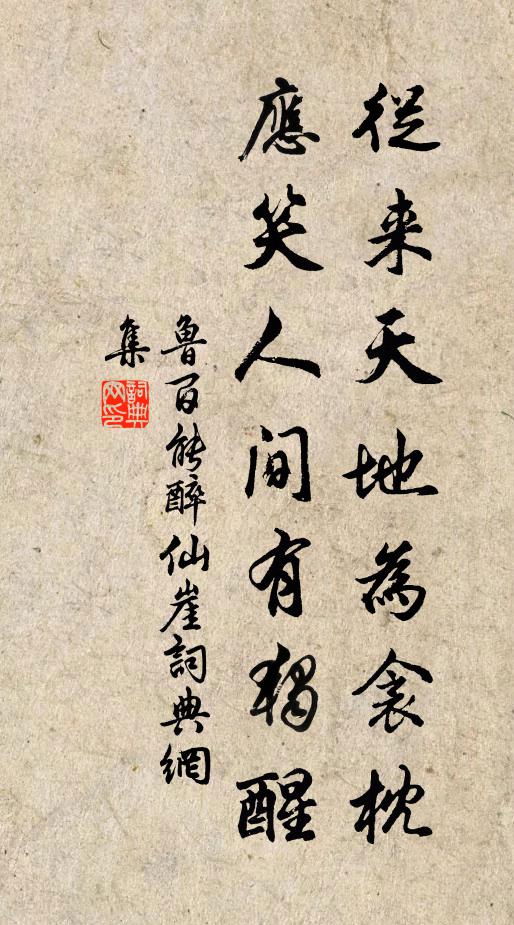 從来天地為衾枕
應笑人間有獨醒
魯百能醉仙崖詞典網
集
詞典網印